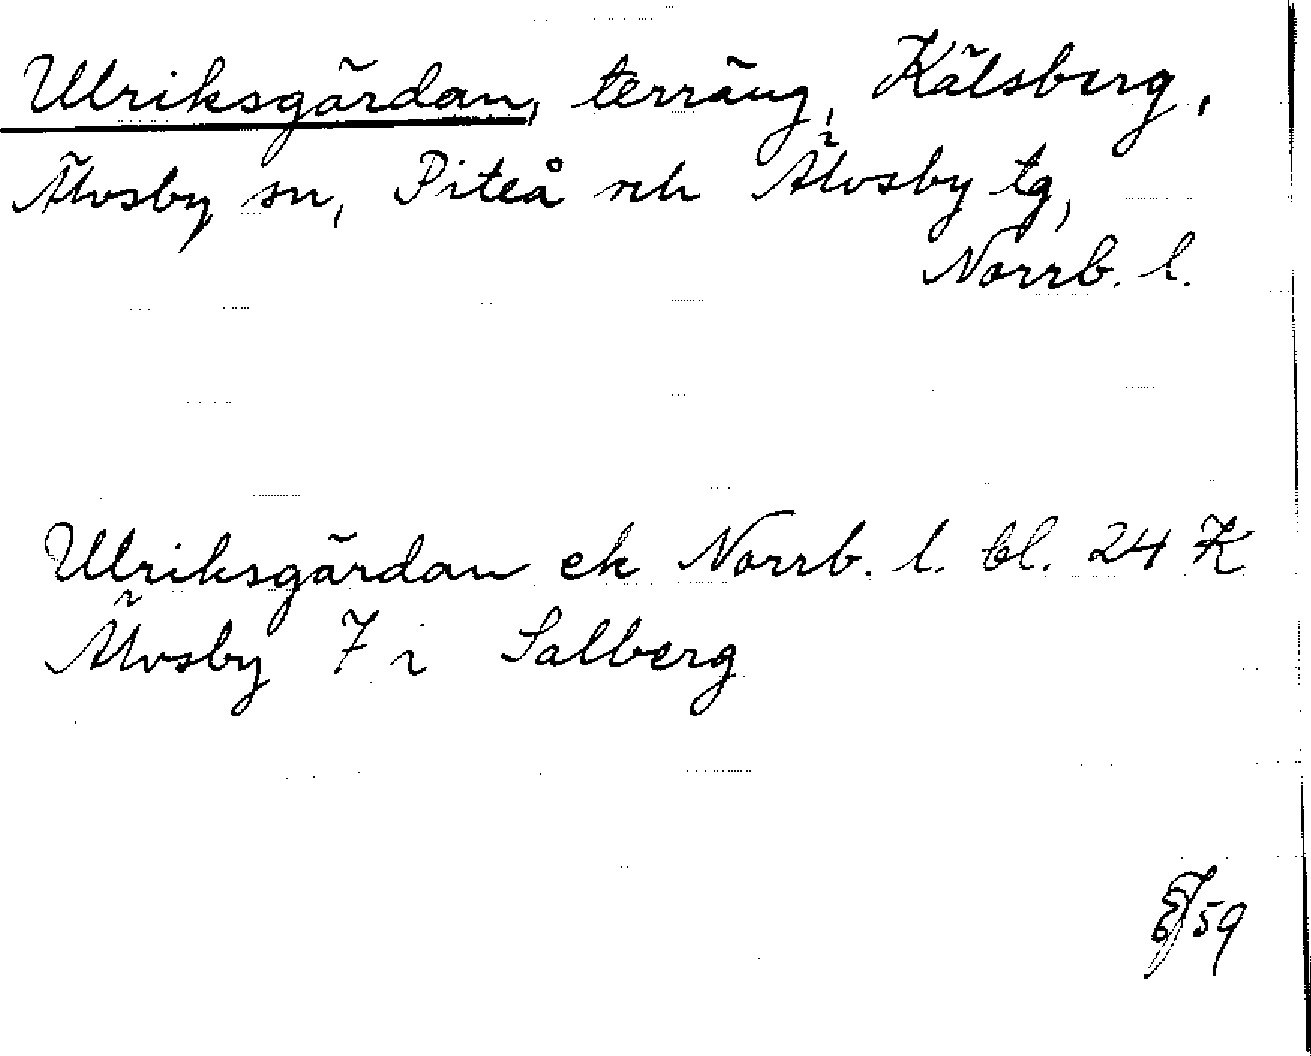 Ulriksgärdan, terräng, Kälsberg,
Älvsby sn, Piteå rch i Älvsby tg,
Norrb. l.
Ulriksgärdan ek Norrb. l. bl. 24 K
Älvsby 7 i Salberg
59